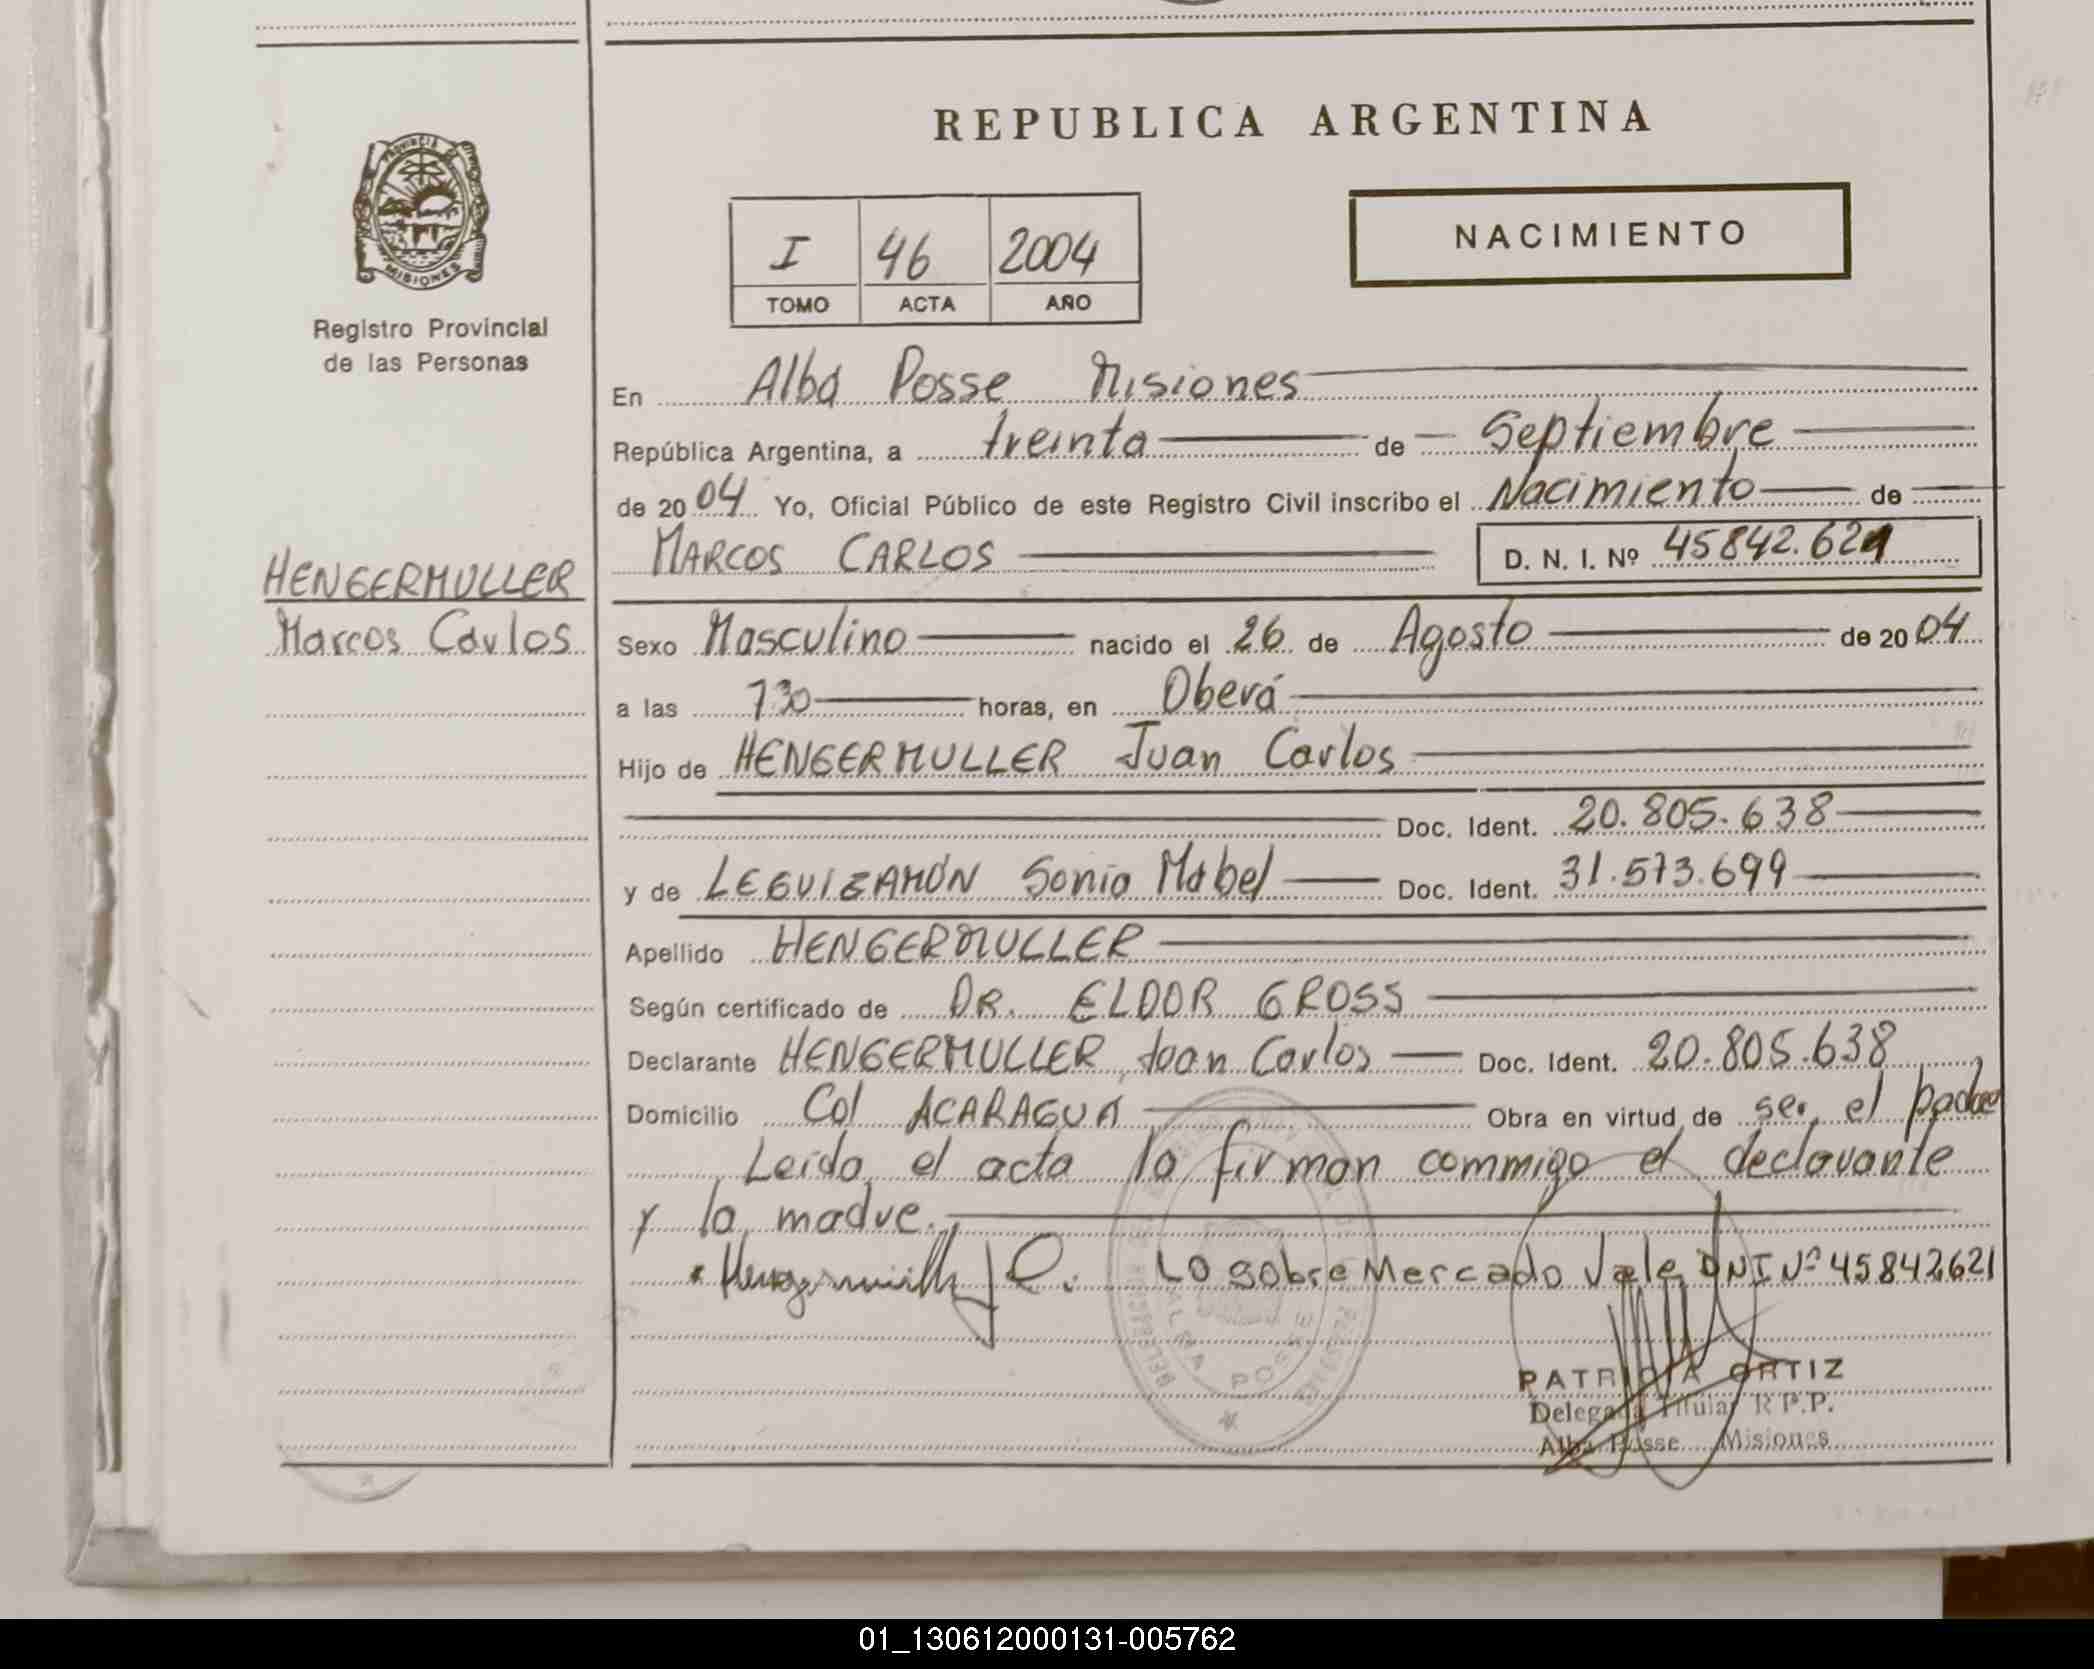 REPUBLICA ARGENTINA
PROVINCIA DE
MISIONES
Registro Provincial
de las Personas
I 46 2004
TOMO ACTA AÑO
NACIMIENTO
En Alba Posse Misiones
República Argentina, a treinta de Septiembre
de 2004 Yo, Oficial Público de este Registro Civil inscribo el Nacimiento de
MARCOS CARLOS D. N. I. Nº 45842.621
HENGERMULLER
Marcos Carlos
Sexo Masculino nacido el 26 de Agosto de 2004
a las 7.30 horas, en Oberá
Hijo de HENGERMULLER Juan Carlos
Doc. Ident. 20.805.638
y de LEGUIZAMÓN Sonia Mabel Doc. Ident. 31.573.699
Apellido HENGERMULLER
Según certificado de DR. ELDOR GROSS
Declarante HENGERMULLER, Juan Carlos Doc. Ident. 20.805.638
Domicilio Col ACARAGUA Obra en virtud de ser el padre
Leída el acta la firman commigo el declarante
y la madre.
Lo sobre Mercado Vale DNI Nº 45842621
ALBA POSSE
PATRICIA ORTIZ
Delegada Titular R.P.P.
Alba Posse Misiones
01_130612000131-005762